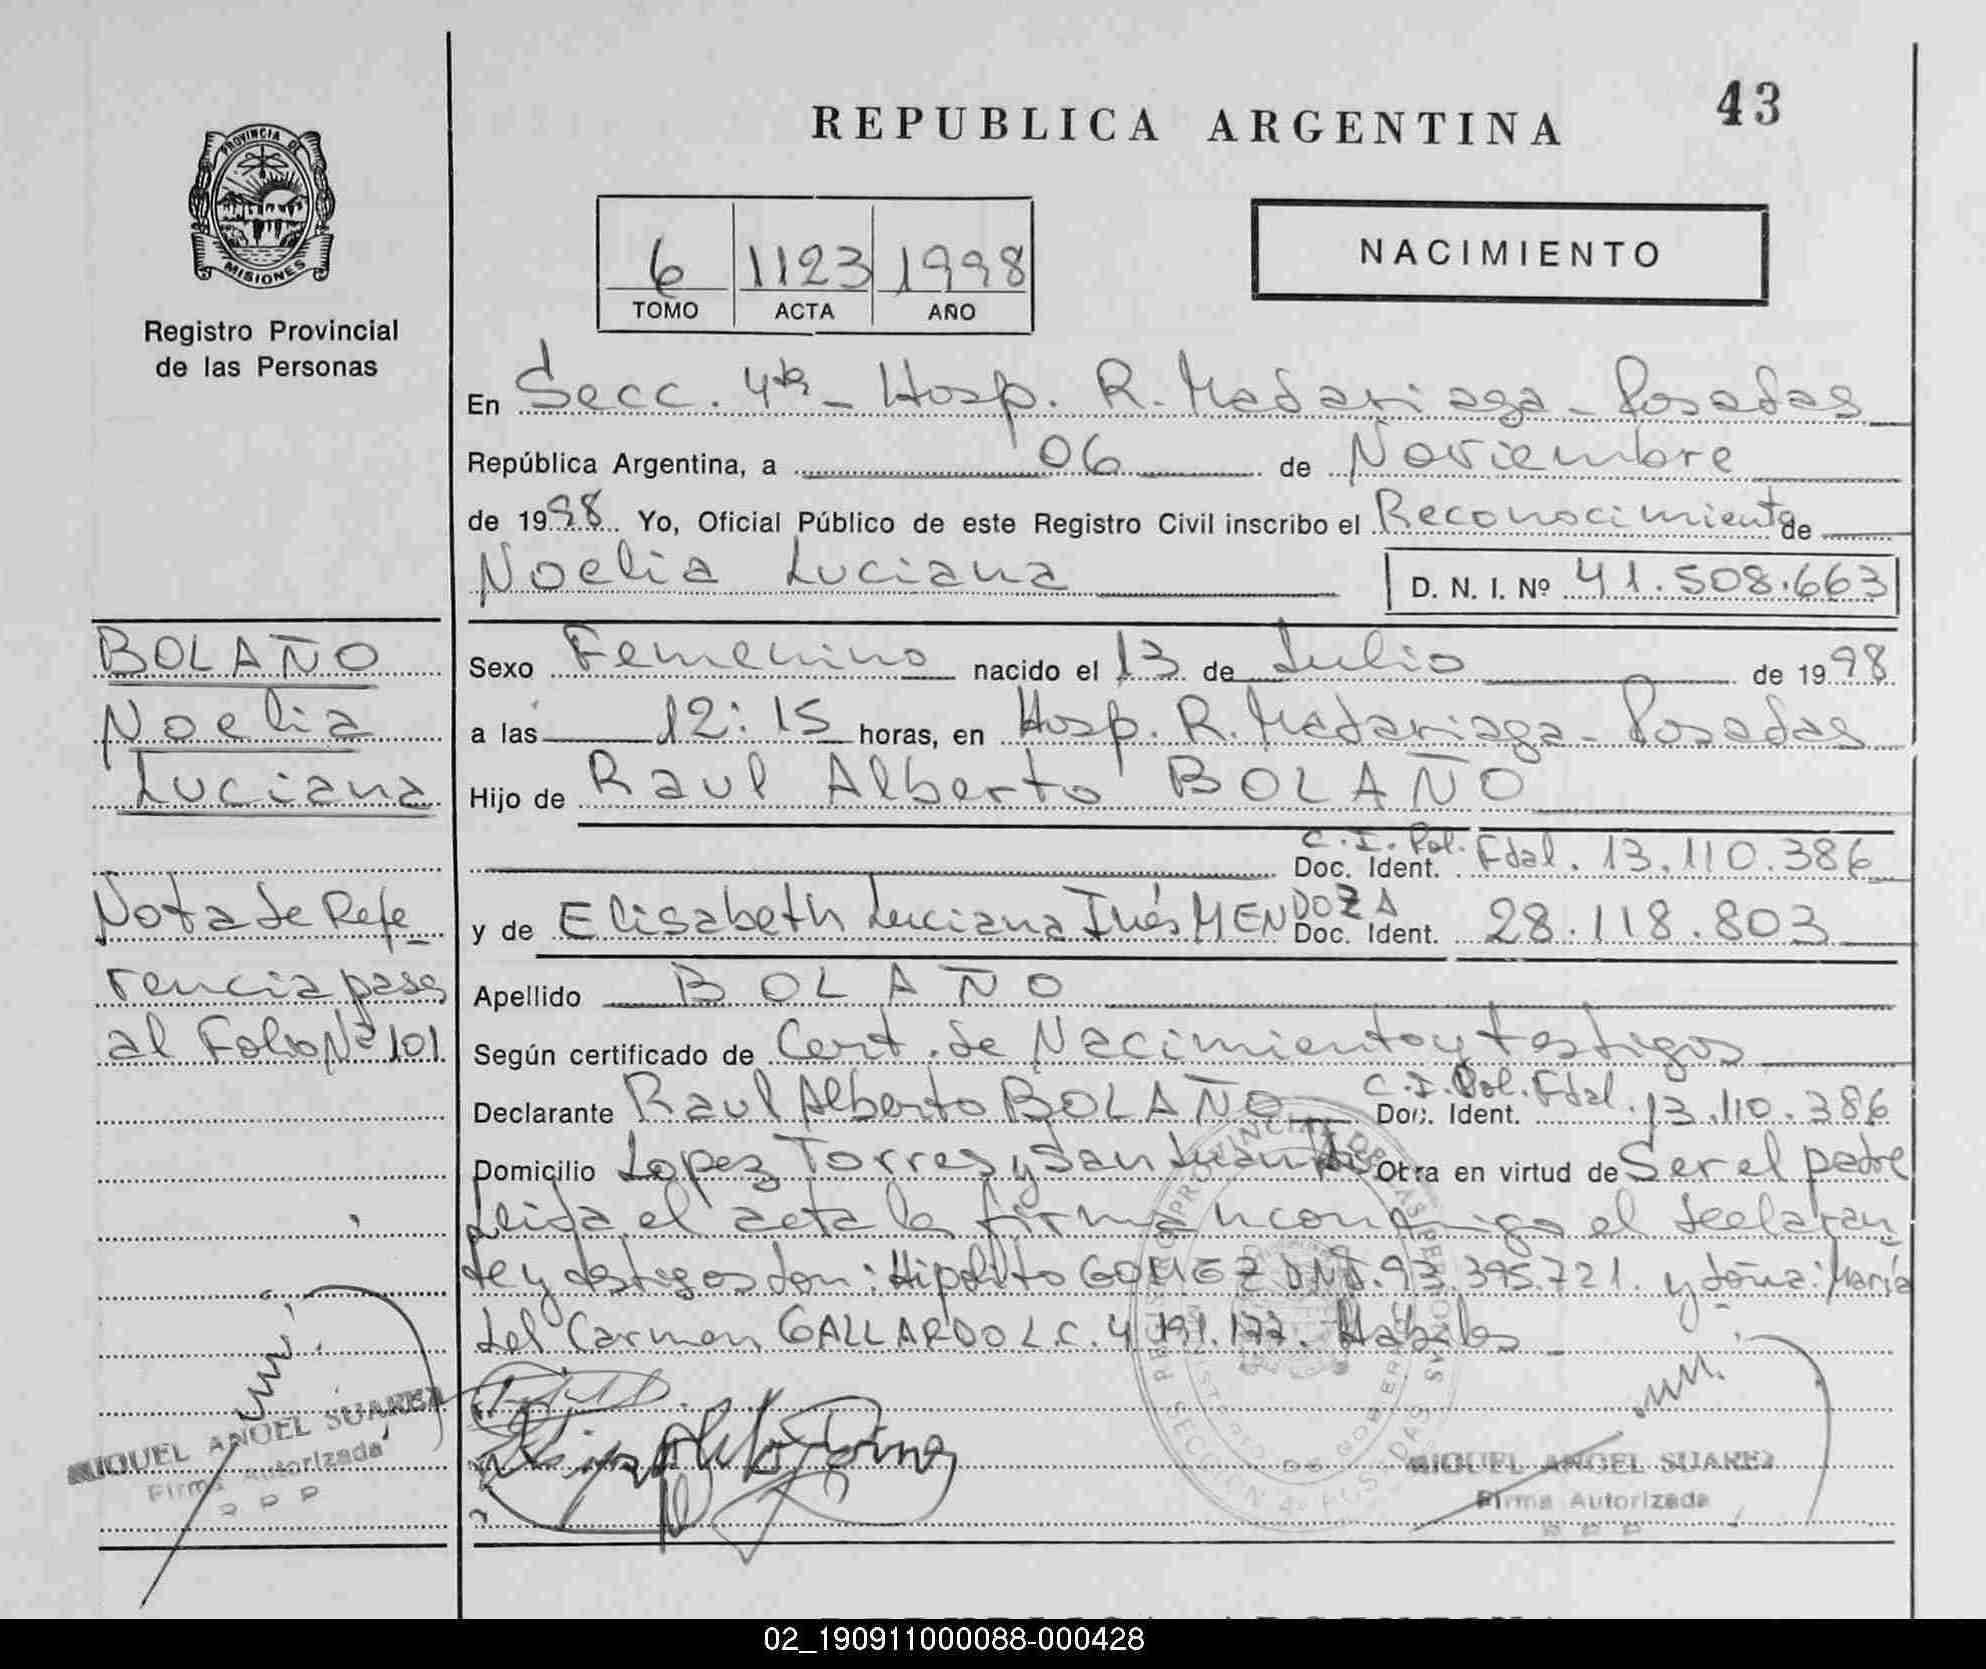 43
REPUBLICA ARGENTINA
PROVINCIA DE
MISIONES
Registro Provincial
de las Personas
6 1123 1998
TOMO ACTA AÑO
NACIMIENTO
En Secc. 4ta - Hosp. R. Madariaga - Posadas
República Argentina, a 06 de Noviembre
de 1998 Yo, Oficial Público de este Registro Civil inscribo el Reconocimiento de
Noelia Luciana D. N. I. Nº 41.508.663
BOLAÑO
Noelia
Luciana
Nota de Refe
rencia pase
al Folio Nº 101
Sexo Femenino nacido el 13 de Julio de 1998
a las 12:15 horas, en Hosp. R. Madariaga - Posadas
Hijo de Raul Alberto BOLAÑO
Doc. Ident. C.I. Pol. Fdal. 13.110.386
y de Elisabeth Luciana Inés MENDOZA Doc. Ident. 28.118.803
Apellido BOLAÑO
Según certificado de Cert. de Nacimiento y testigos
Declarante Raul Alberto BOLAÑO Doc. Ident. C.I. Pol. Fdal. 13.110.386
Domicilio Lopez Torres y San Juan Otra en virtud de Ser el padre
Leida el acta la firman conmigo el declaran
te y testigos don: Hipolito GOMEZ DNI. 93.395.721. y doña: María
del Carmen GALLARDO L.C. 4.191.177. Habiles
MIGUEL ANGEL SUAREZ
Firma Autorizada
R P P
MIGUEL ANGEL SUAREZ
Firma Autorizada
R P P
02_190911000088-000428